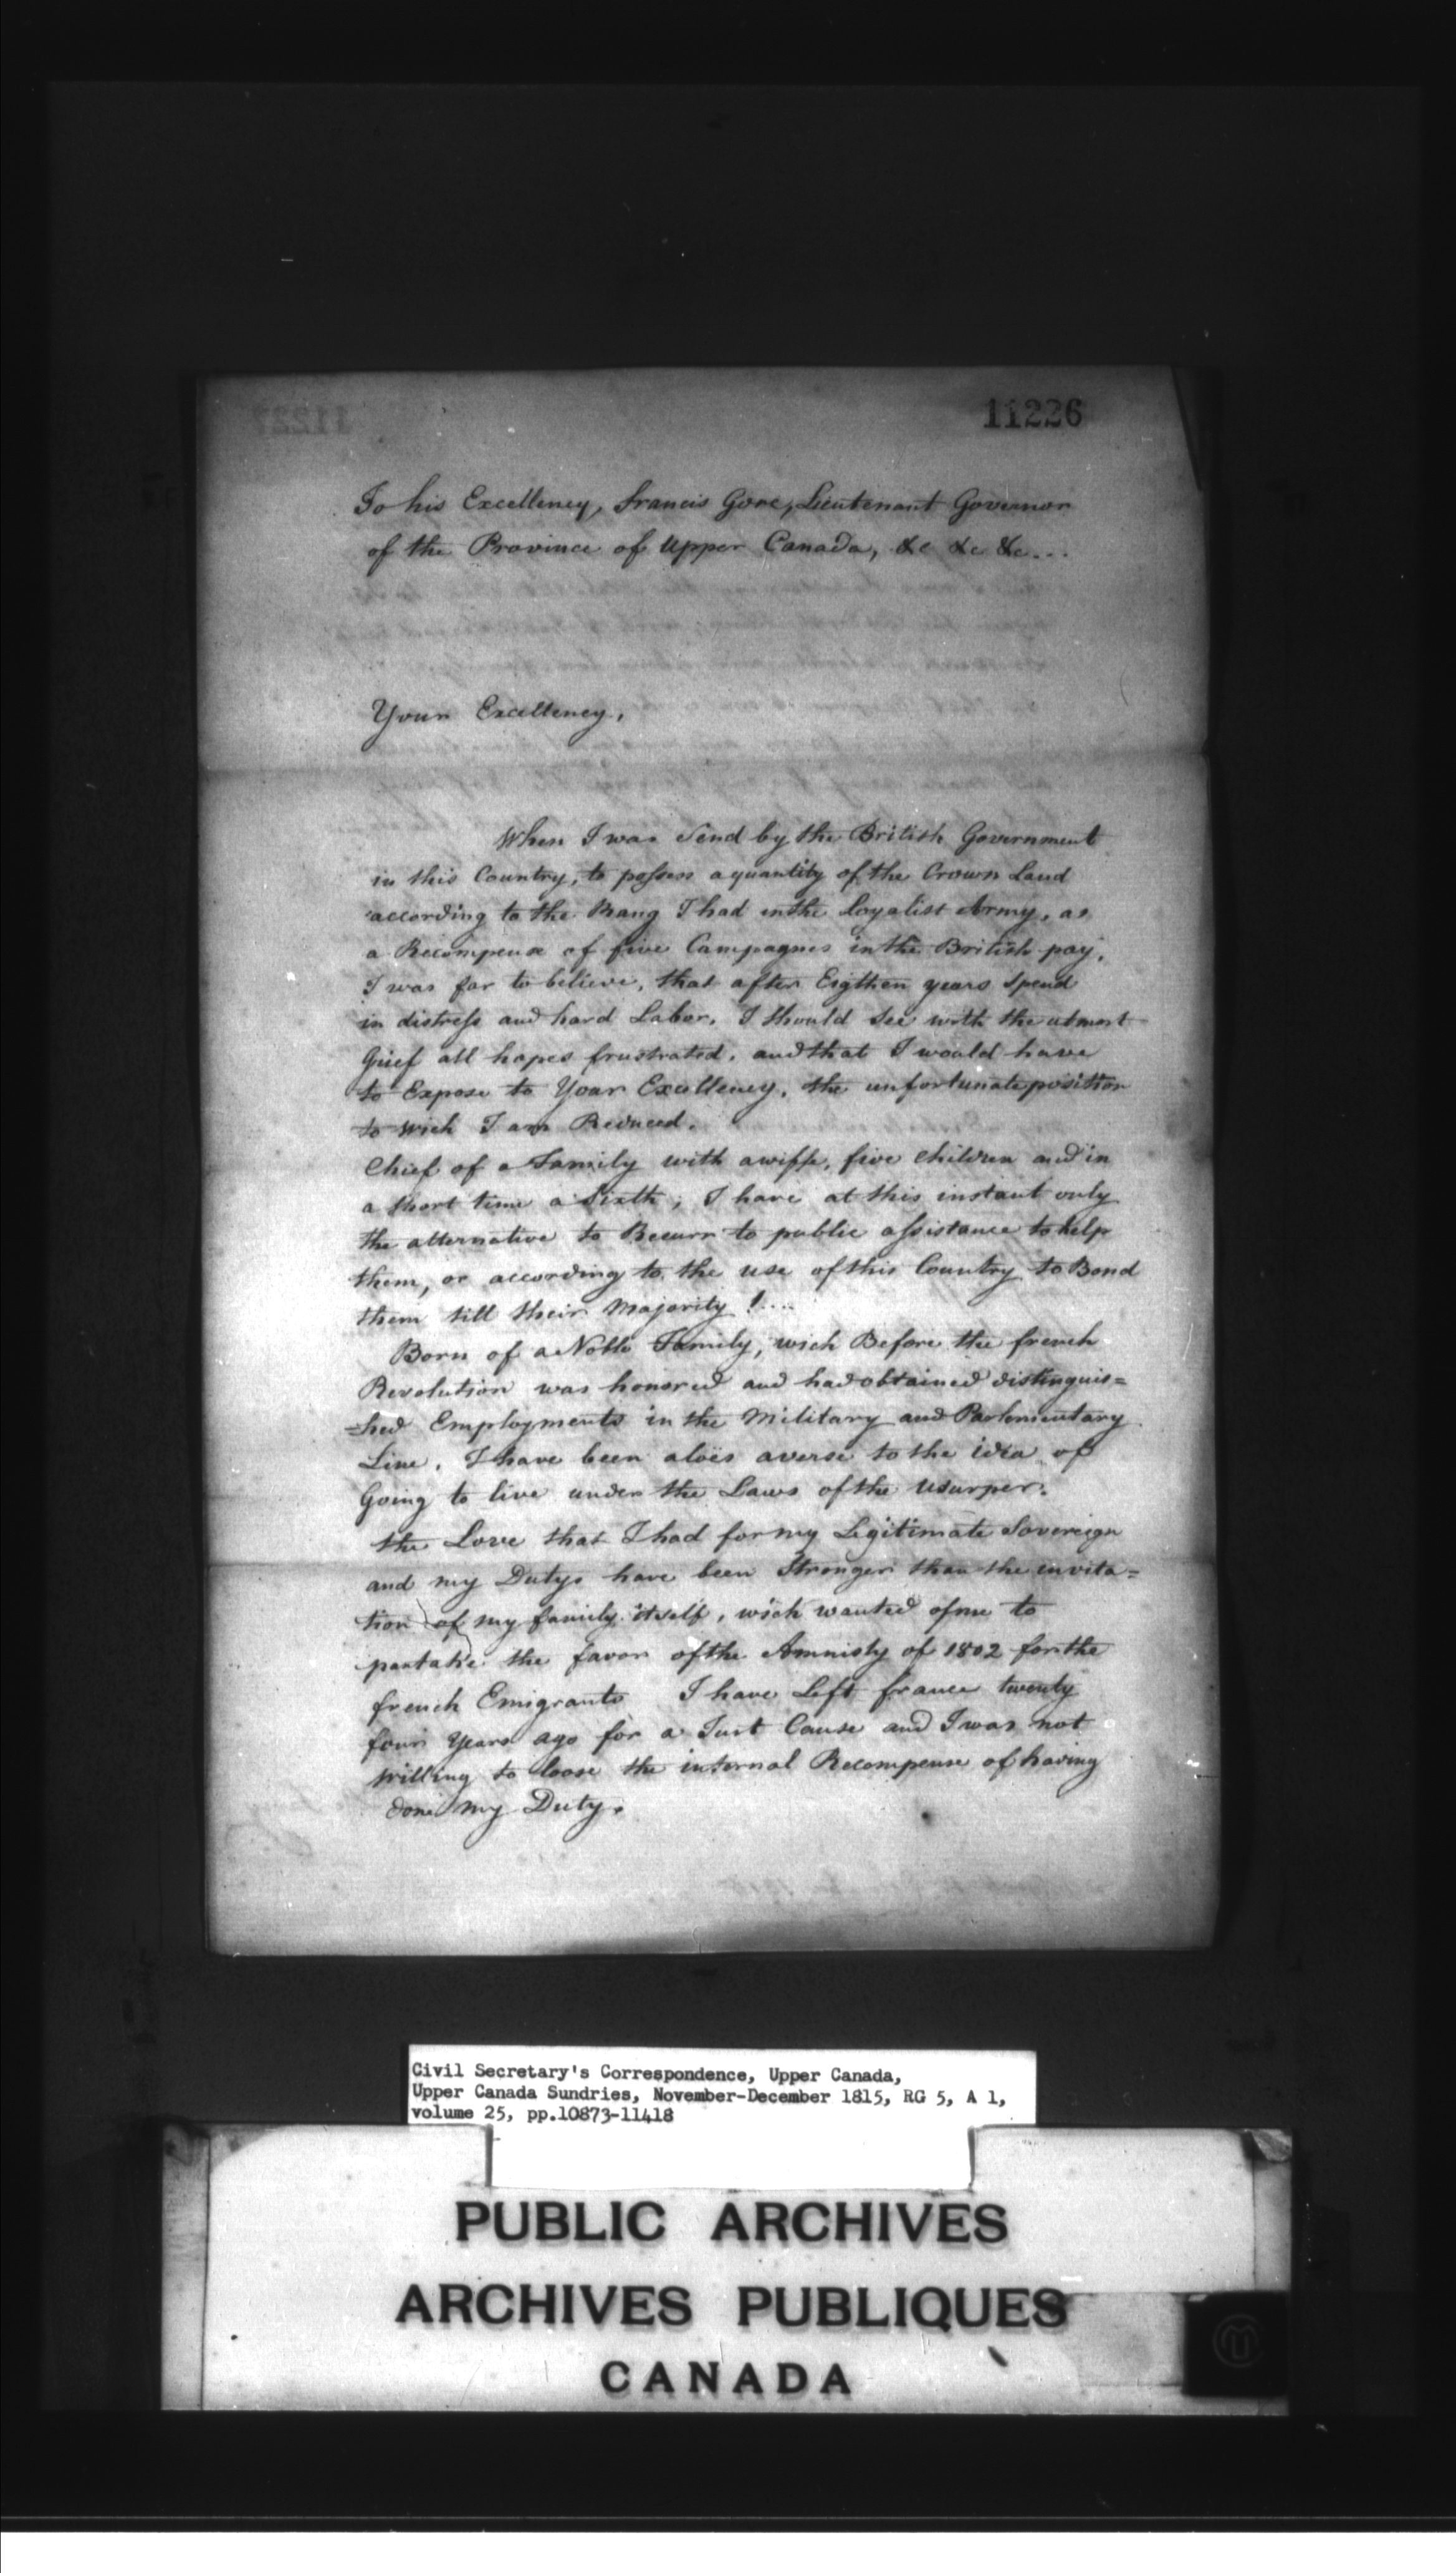 11226
To his Excellency, Francis Gore, Lieutenant Governor
of the Province of Upper Canada, &c &c &c...
Your Excellency,
When I was Send by the British Government
in this Country, to possess a quantity of the Crown Land
according to the Rang I had in the Loyalist Army, as
a Recompense of five Campagnes in the British pay,
I was far to believe, that after Eigthen years Spend
in distress and hard Labor, I should See with the utmost
Grief all hopes frustrated, and that I would have
to Expose to Your Excellency, the unfortunate position
to wich I am Reduced.
Chief of a Family with a wiffe, five children and in
a short time a Sixth, I have at this instant only
the alternative to Recurr to public assistance to help
them, or according to the use of this Country to Bond
them till their Majority !....
Born of a Noble Family, wich Before the french
Revolution was honored and had obtained distinguis=
=hed Employments in the Military and Parlementary
Line, I have been aloës averse to the idea of
Going to live under the Laws of the Usurper.
the Love that I had for my Legitimate Sovereign
and my Dutys have been Stronger than the invita=
tion of my family itself, wich wanted of me to
partake the favor of the Amnisty of 1802 for the
french Emigrants I have Left france twenty
four Years ago for a Just Cause and I was not
Willing to loose the internal Recompense of having
done my Duty.
Civil Secretary's Correspondence, Upper Canada,
Upper Canada Sundries, November-December 1815, RG 5, A 1,
volume 25, pp.10873-11418
PUBLIC ARCHIVES
ARCHIVES PUBLIQUES
CANADA